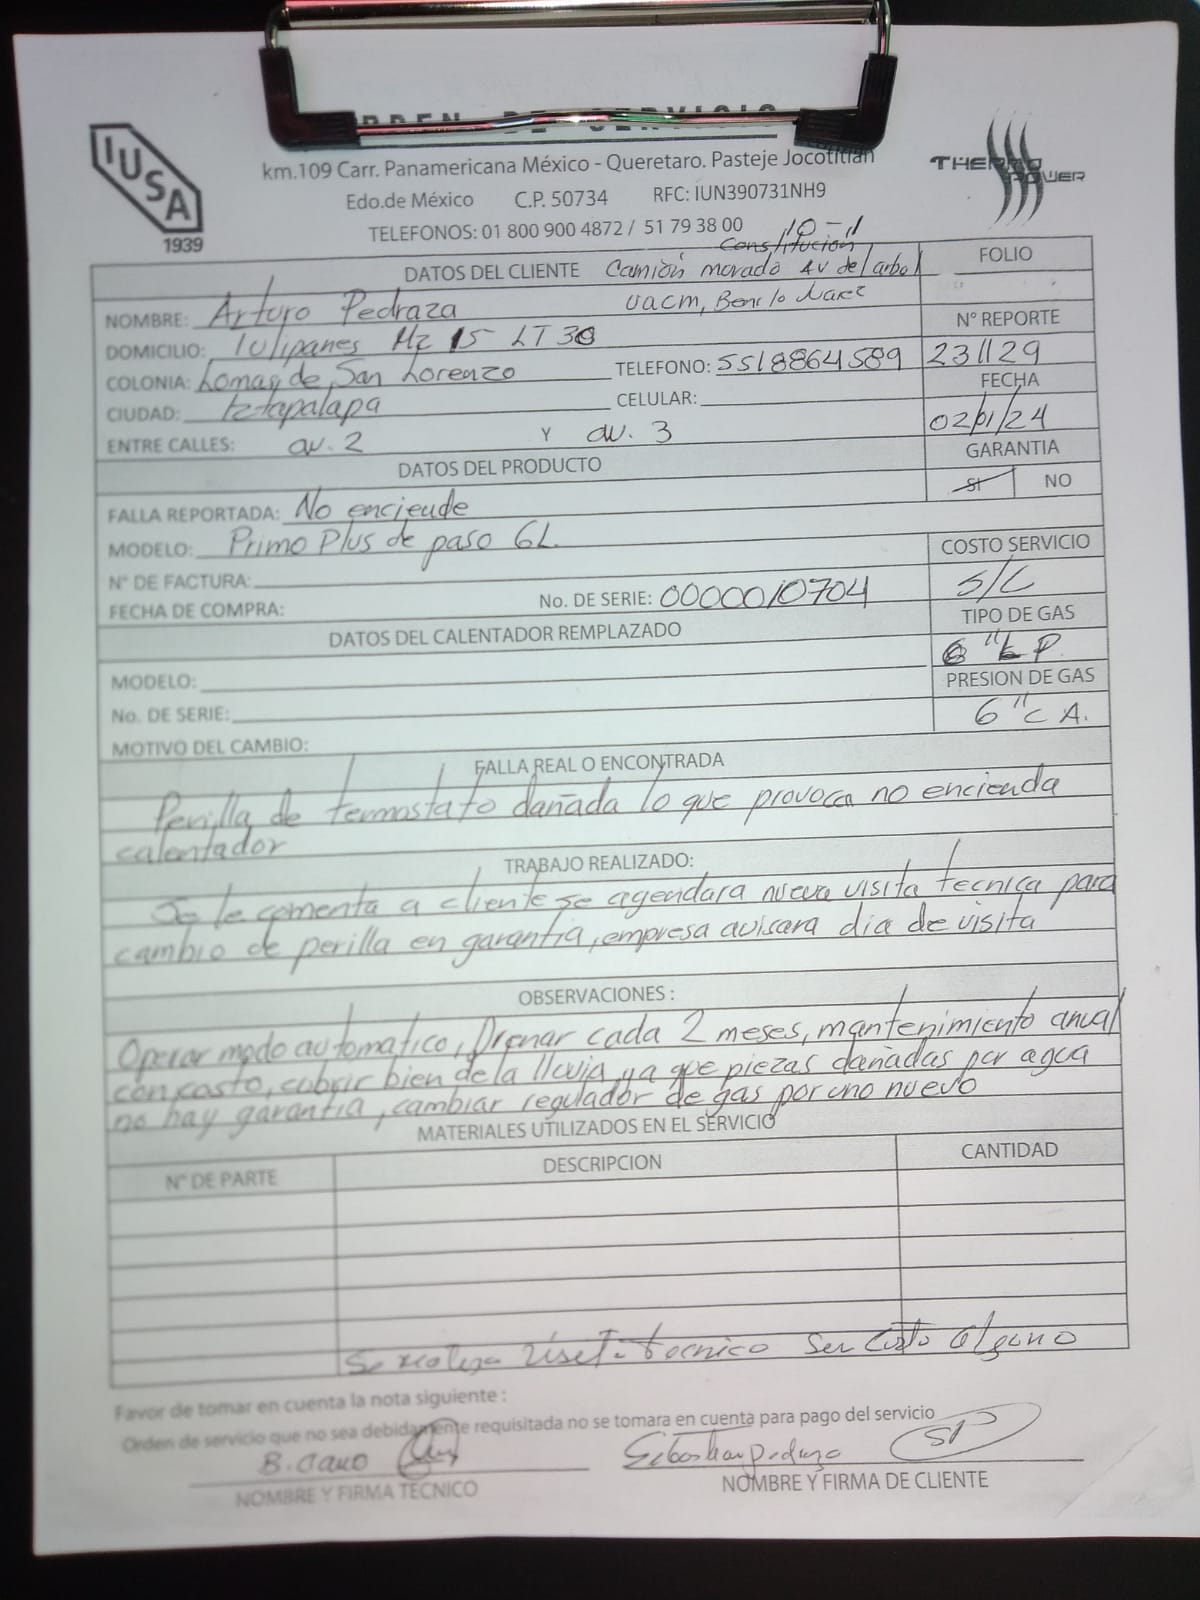 ORDEN DE SERVICIO
IUSA
1939
THERMO POWER
km.109 Carr. Panamericana México - Queretaro. Pasteje Jocotitlan
Edo.de México C.P. 50734 RFC: IUN390731NH9
TELEFONOS: 01 800 900 4872 / 51 79 38 00
10-11
Constitución
DATOS DEL CLIENTE Camión morado Av del arbol
FOLIO
NOMBRE: Arturo Pedraza
uacm, Benito Juarez
N° REPORTE
DOMICILIO: Tulipanes Mz 15 LT 30
COLONIA: Lomas de San Lorenzo TELEFONO: 5518864589 231129
FECHA
CIUDAD: Iztapalapa CELULAR:
02/01/24
ENTRE CALLES: av. 2 Y av. 3
GARANTIA
DATOS DEL PRODUCTO
SI NO
FALLA REPORTADA: No enciende
MODELO: Primo Plus de paso 6L.
COSTO SERVICIO
N° DE FACTURA:
S/C
FECHA DE COMPRA: No. DE SERIE: 0000010704
TIPO DE GAS
DATOS DEL CALENTADOR REMPLAZADO
L P.
MODELO:
PRESION DE GAS
No. DE SERIE:
6" C A.
MOTIVO DEL CAMBIO:
FALLA REAL O ENCONTRADA
Perilla de termostato dañada lo que provoca no encienda
calentador
TRABAJO REALIZADO:
Se le comenta a cliente se agendara nueva visita tecnica para
cambio de perilla en garantia, empresa avisara dia de visita
OBSERVACIONES :
Operar modo automatico, Drenar cada 2 meses, mantenimiento anual
con costo, cubrir bien de la lluvia, ya que piezas dañadas por agua
no hay garantia, cambiar regulador de gas por uno nuevo
MATERIALES UTILIZADOS EN EL SERVICIO
N° DE PARTE DESCRIPCION CANTIDAD
Se realiza visita tecnico Sen Costo alguno
Favor de tomar en cuenta la nota siguiente :
Orden de servicio que no sea debidamente requisitada no se tomara en cuenta para pago del servicio
B. Cano
Sebastian pedraza
NOMBRE Y FIRMA TECNICO
NOMBRE Y FIRMA DE CLIENTE